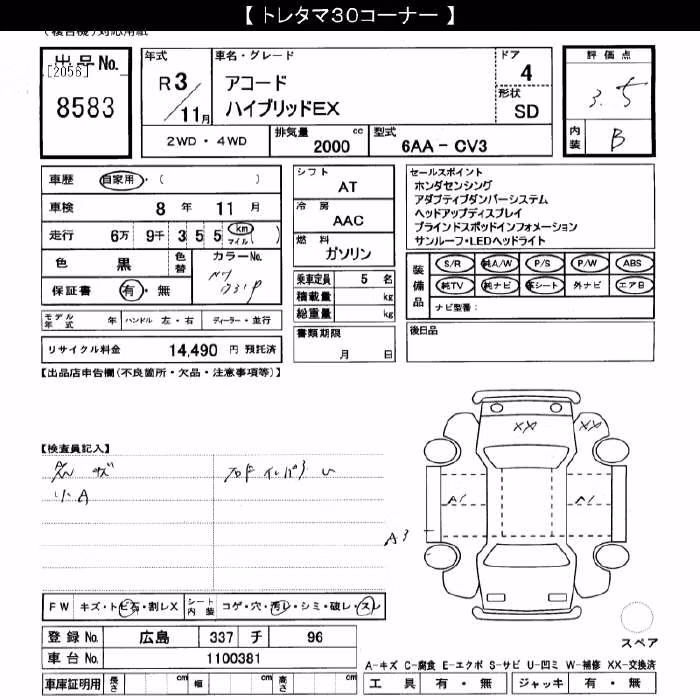 【 トレタマ30コーナー 】
出品No.
[2056]
8583
年式
R 3/11月
車名・グレード
アコード
ハイブリッドEX
ドア
4
形状
SD
評価点
3.5
内装
B
2WD・4WD
排気量
2000 cc
型式
6AA - CV3
車歴 自家用・( )
車検 8 年 11 月
走行 6万 9千 3 5 5 km マイル ( )
色 黒 色替
カラーNo.
保証書 有・無
モデル年式 年 ハンドル 左・右 ディーラー・並行
リサイクル料金 14,490 円 預託済
シフト
AT
冷房
AAC
燃料
ガソリン
乗車定員 5 名
積載量 kg
総重量 kg
書類期限
月 日
セールスポイント
ホンダセンシング
アダプティブダンパーシステム
ヘッドアップディスプレイ
ブラインドスポットインフォメーション
サンルーフ・LEDヘッドライト
装備品
S/R 純A/W P/S P/W ABS
純TV 純ナビ 革シート 外ナビ エアB
ナビ型番:
後日品
【出品店申告欄(不良箇所・欠品・注意事項等)】
【検査員記入】
リA
XX
XX
A1
A1
A3
FW キズ・トビ石・割レX シート内装 コゲ・穴・汚レ・シミ・破レ・スレ
登録No. 広島 337 チ 96
車台No. 1100381
車庫証明用 長さ cm 幅 cm 高さ cm
スペア
A-キズ C-腐食 E-エクボ S-サビ U-凹ミ W-補修 XX-交換済
工具 有・無 ジャッキ 有・無